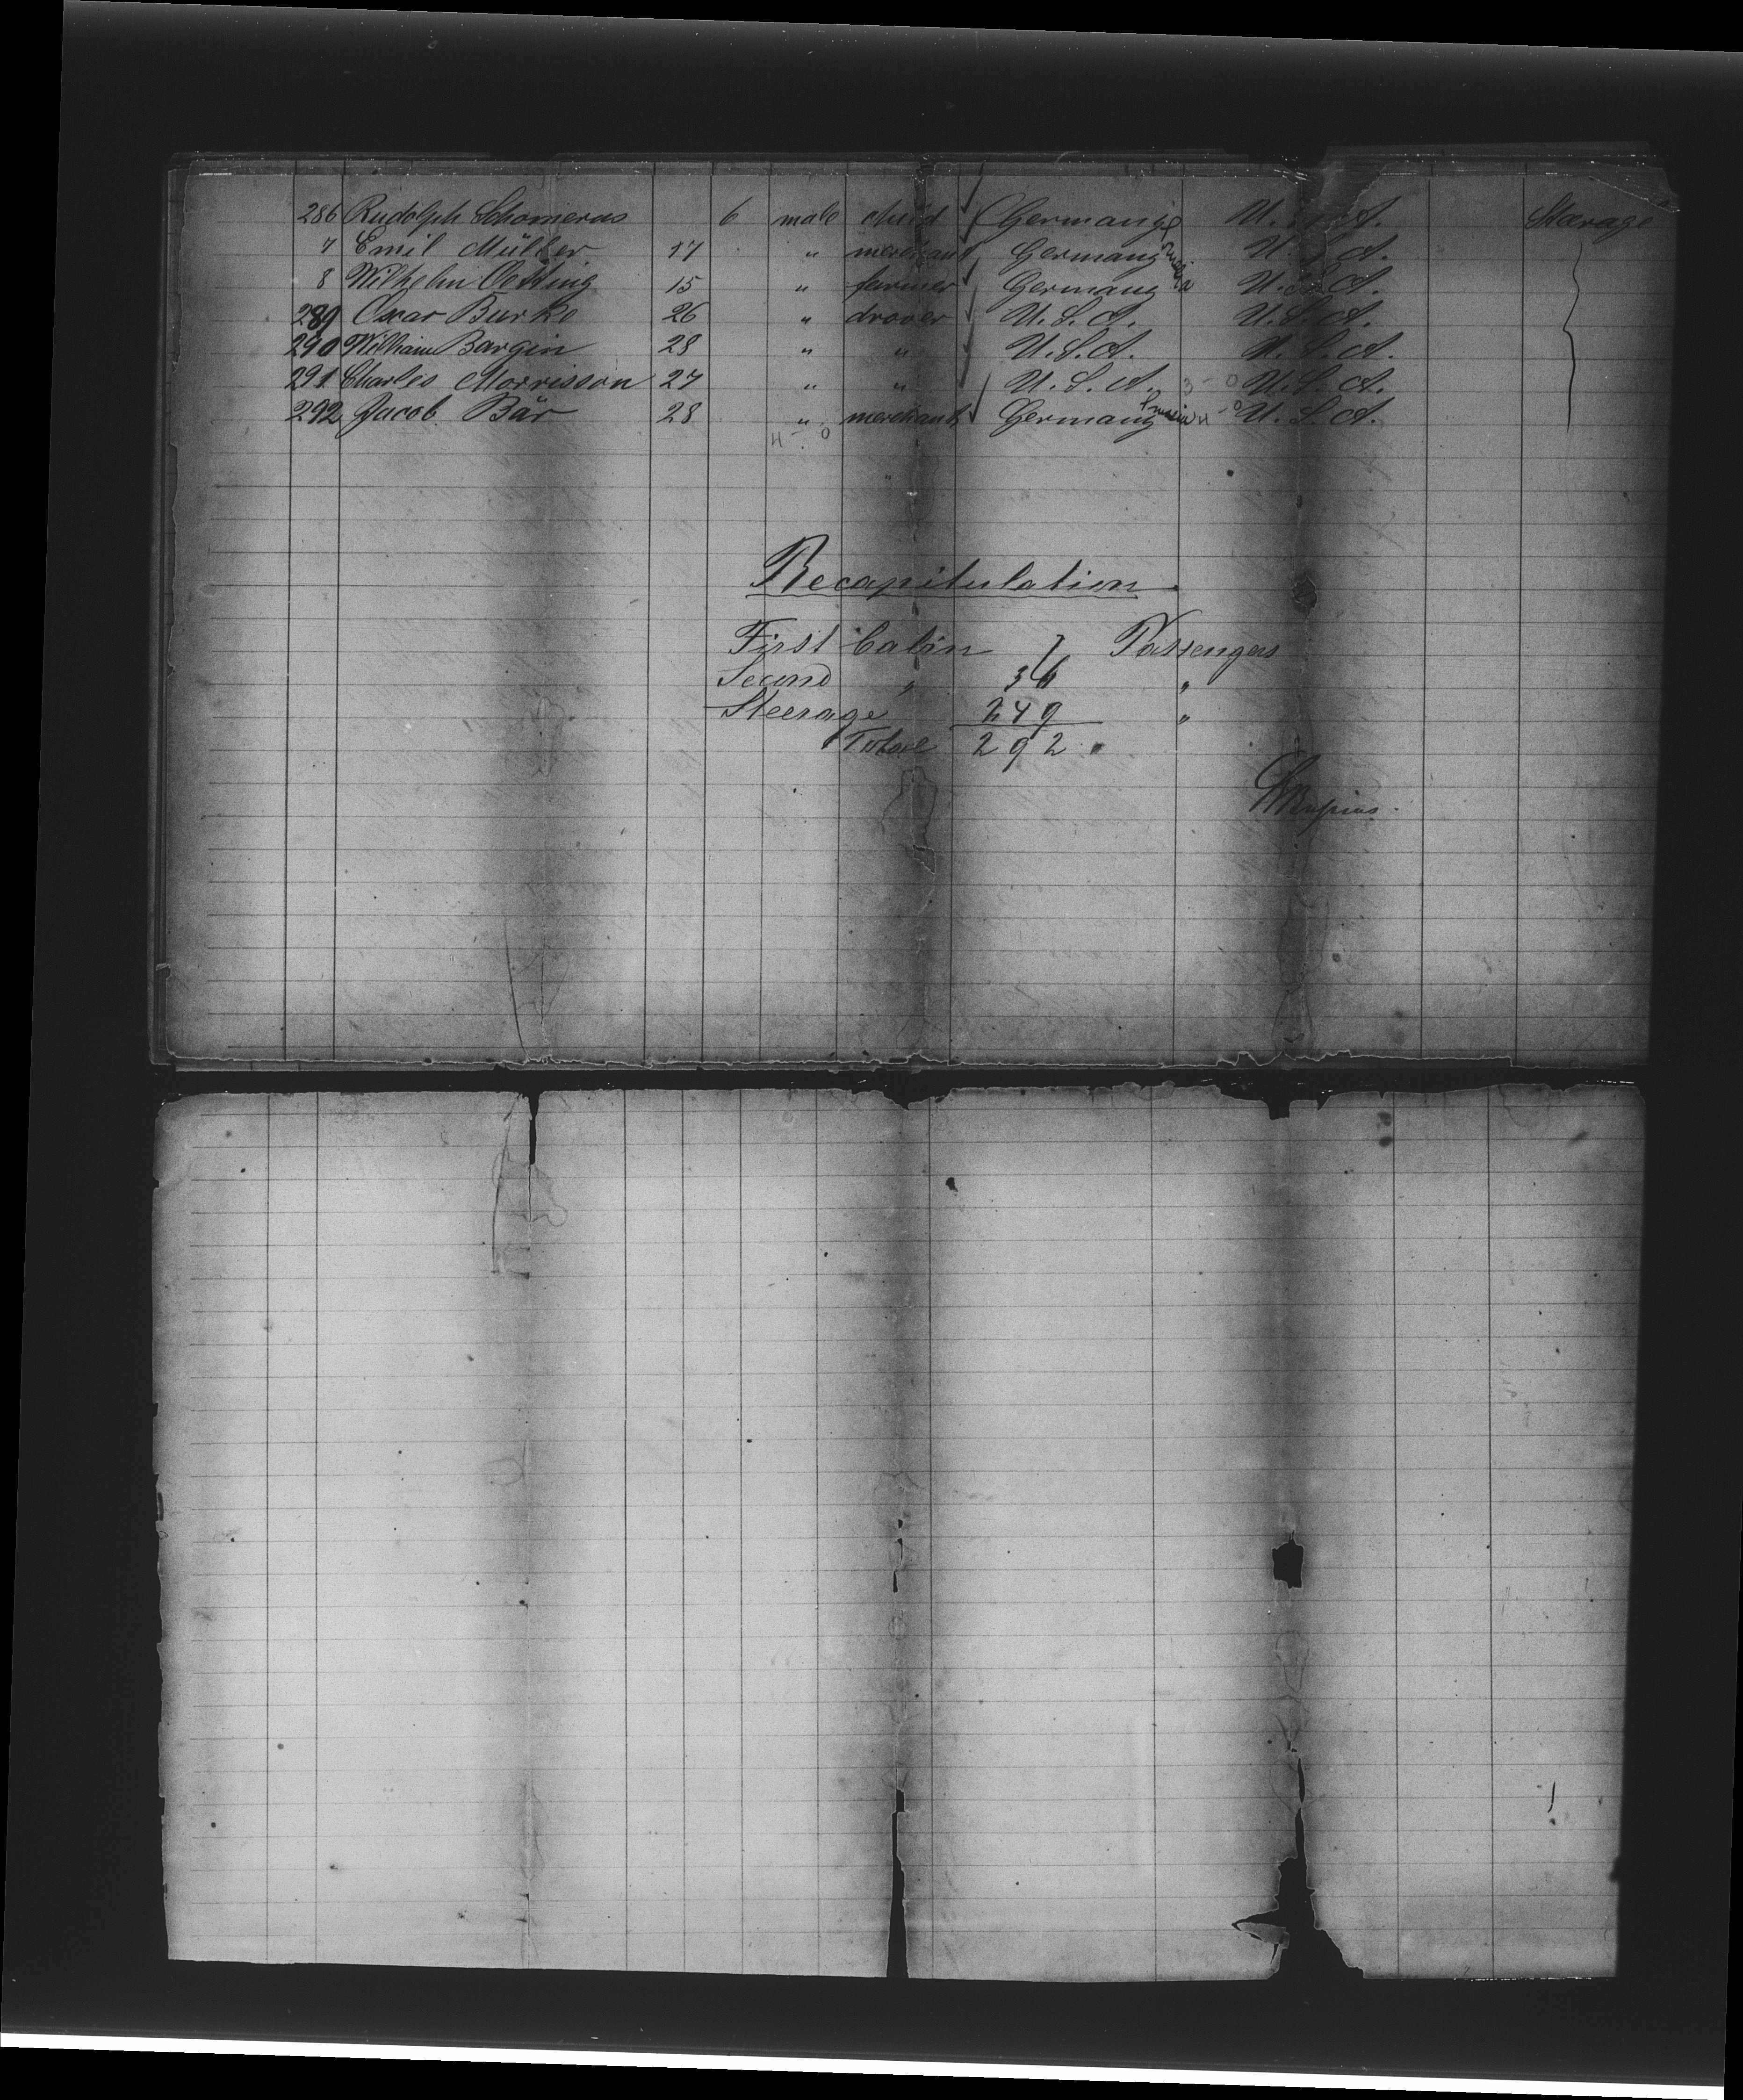 286 Rudolph Schomerus 6 male child Germany U.S.A. Steerage
7 Emil Müller 17 " merchant Germany U.S.A.
8 Wilhelm Oetting 15 " farmer Germany U.S.A.
289 Oscar Burke 26 " drover U.S.A. U.S.A.
290 William Bargin 28 " " U.S.A. U.S.A.
291 Charles Morrisson 27 " " U.S.A. 3-0 U.S.A.
292 Jacob Bär 28 " merchant Germany Prussia 4-0 U.S.A.
4-0
Recapitulation.
First Cabin 7 Passengers
Second " 36 "
Steerage 249 "
Total 292 "